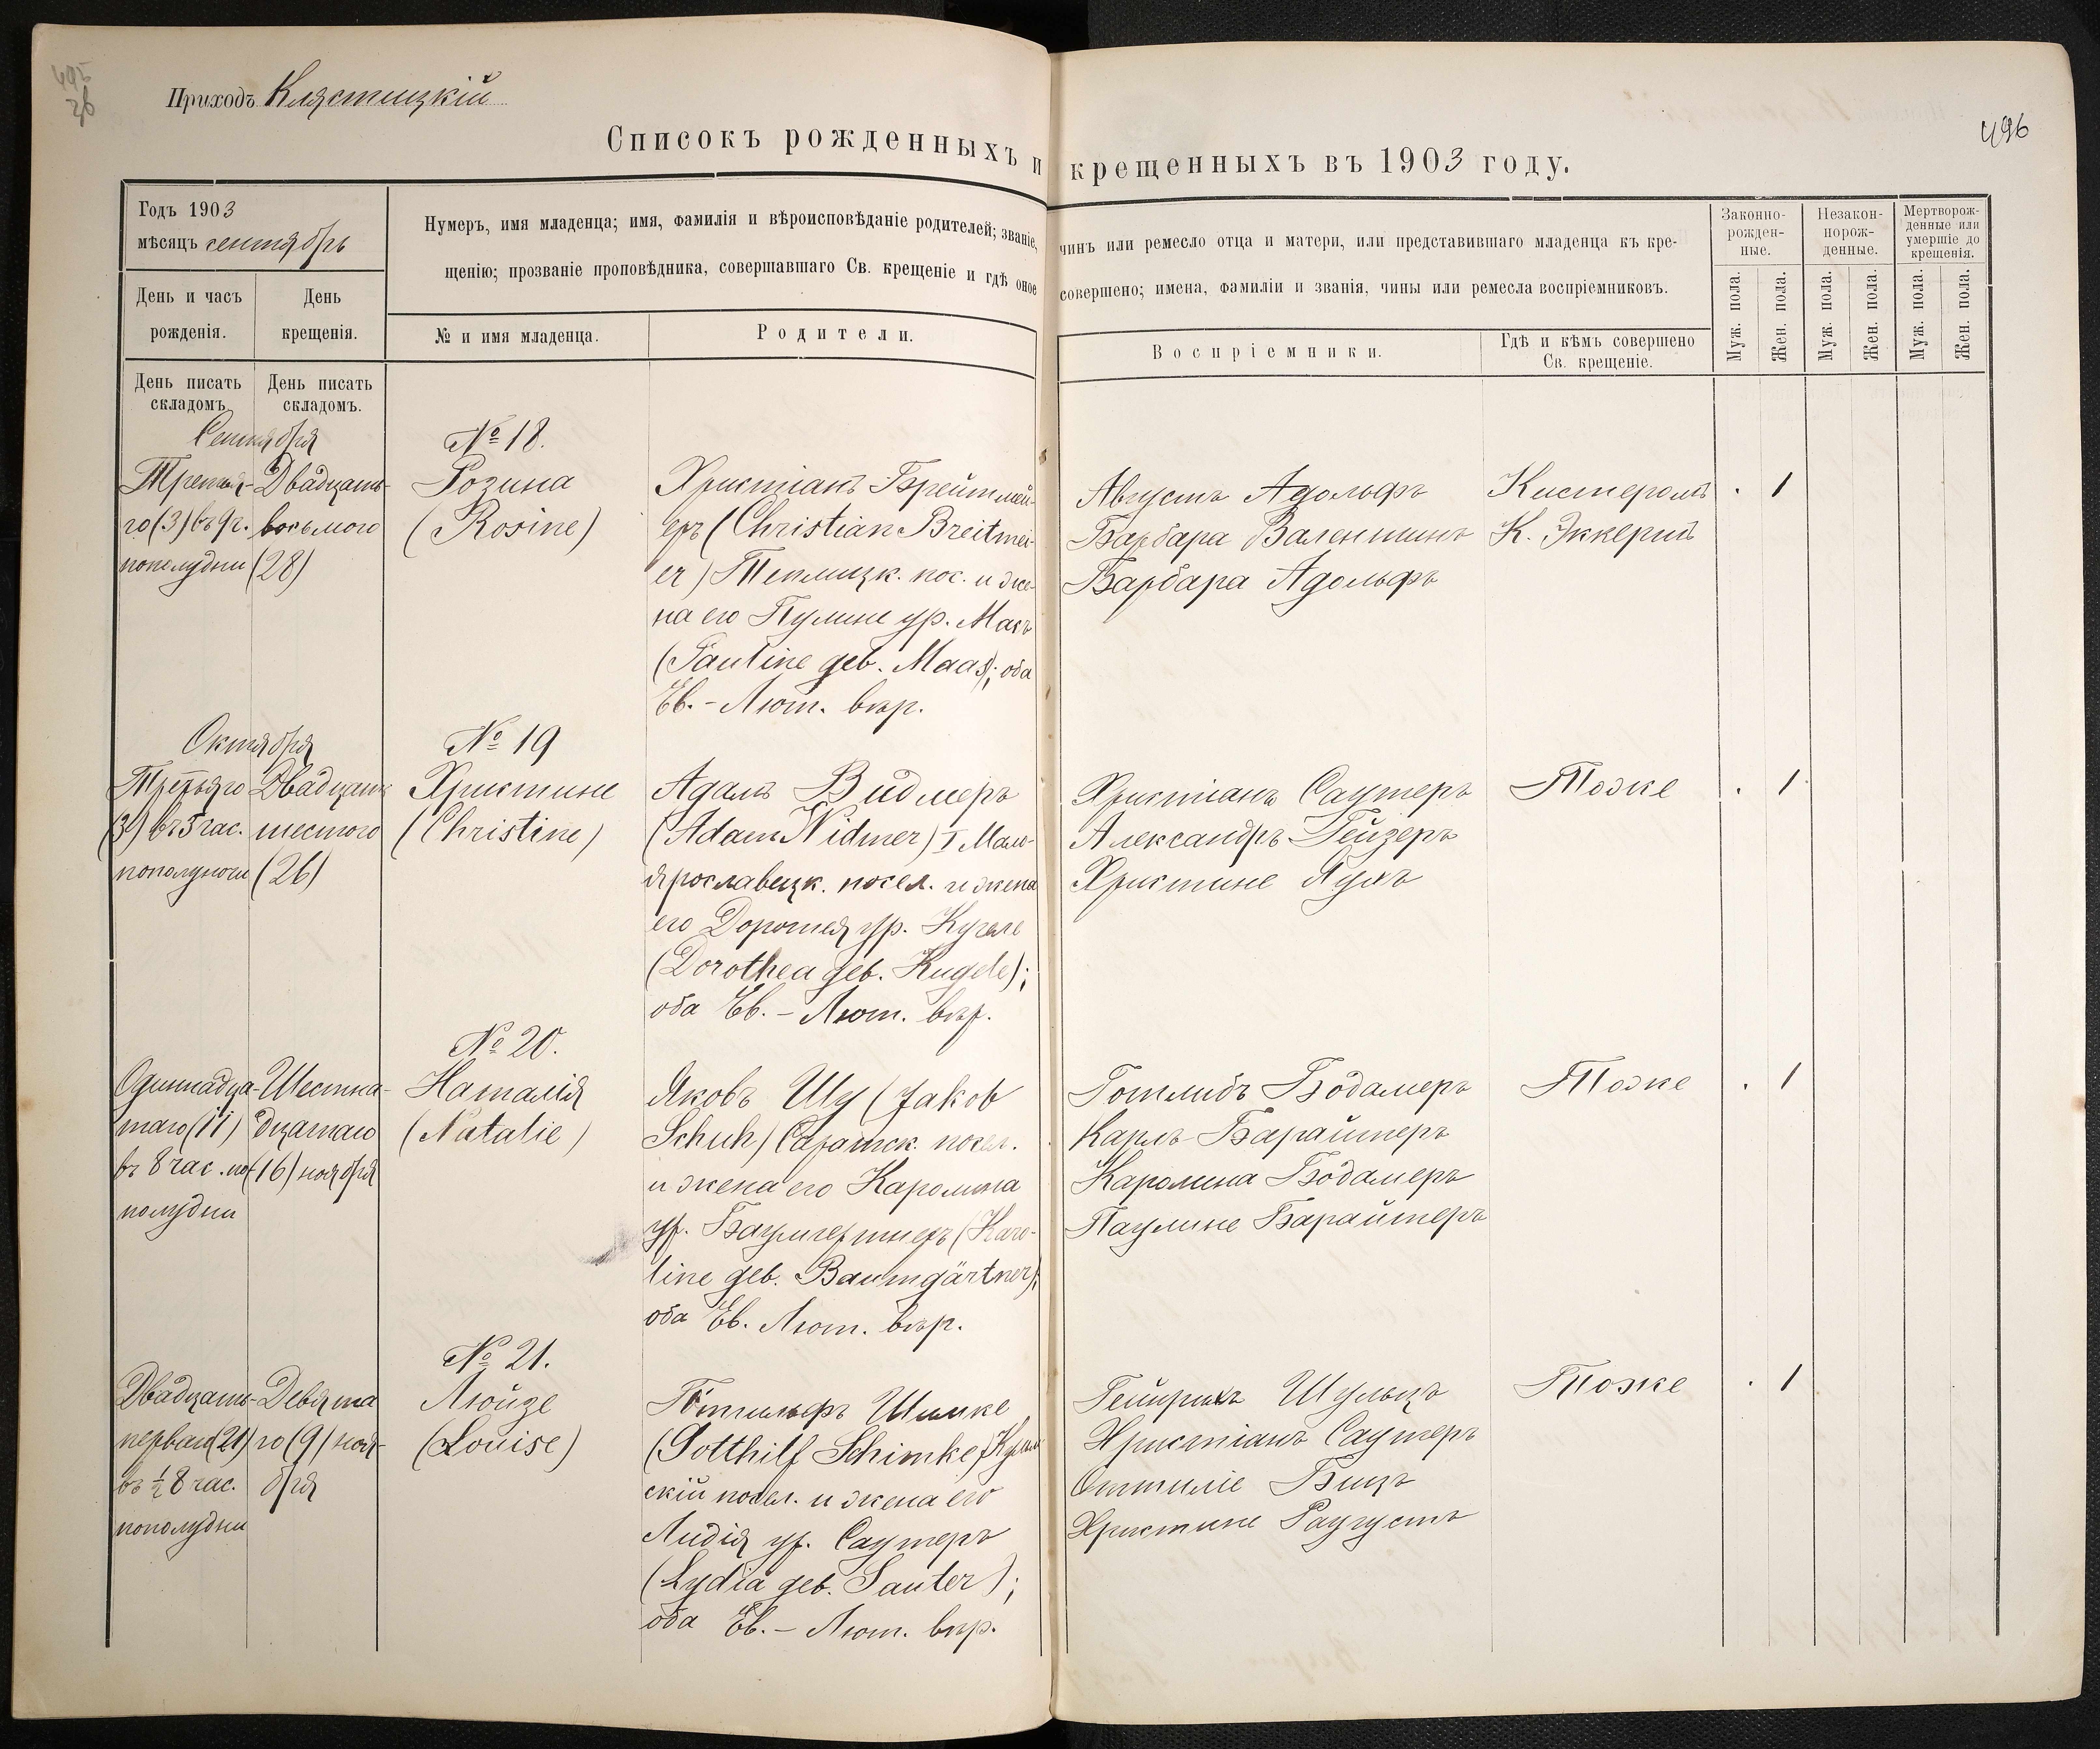 495
36
Приходъ Клястицкій
496
Списокъ рожденныхъ и крещенныхъ въ 1903 году.
Годъ 1903
мѣсяцъ сентябрь
День и часъ
рожденія.
День
крещенія.
День писать
складомъ.
День писать
складомъ.
Нумеръ, имя младенца; имя, фамилія и вѣроисповѣданіе родителей; званіе,
щенію; прозваніе проповѣдника, совершавшаго Св. крещеніе и гдѣ оное
№ и имя младенца.
Родители.
чинъ или ремесло отца и матери, или представившаго младенца къ кре-
совершено; имена, фамиліи и званія, чины или ремесла воспріемниковъ.
Воспріемники.
Гдѣ и кѣмъ совершено
Св. крещеніе.
Законно-
рожден-
ные.
Незакон-
норож-
денные.
Мертворож-
денные или
умершіе до
крещенія.
Муж. пола.
Жен. пола.
Муж. пола.
Жен. пола.
Муж. пола.
Жен. пола.
Сентября
Третья-
го (3) въ 9 ч.
пополудни
Двадцать
восьмого
(28)
№ 18.
Розина
(Rosine)
Христіанъ Бреитмей-
еръ (Christian Breitmei-
er) Теплицк. пос. и же-
на его Пулине ур. Маасъ
(Pauline geb. Maas); оба
Ев.-Лют. вѣр.
Августъ Адольфъ
Барбара Валентинъ
Барбара Адольфъ
Кистеромъ
К. Эккертъ
. 1
Октября
Третьяго
(3) въ 5 час.
пополудни
Двадцать
шестого
(26)
№ 19
Христине
(Christine)
Адамъ Видмеръ
(Adam Widmer) I Мало-
ярославецк. посел. и жена
его Доротея ур. Кугеле
(Dorothea geb. Kugele);
оба Ев.-Лют. вѣр.
Христіанъ Саутеръ
Александръ Гейзеръ
Христине
Тоже
. 1
Одиннадца-
таго (11)
въ 8 час. по
полудни
Шестна-
дцатаго
(16) ноября
№ 20.
Наталія
(Natalie)
Яковъ Шу (Jakob
Schuh) Саратск. посел.
и жена его Каролина
ур. Баумгертнеръ (Karo-
line geb. Baumgärtner);
оба Ев. Лют. вѣр.
Готлибъ Бодамеръ
Карлъ Барайтеръ
Каролина Бодамеръ
Паулине Барайтеръ
Тоже
. 1
Двадцать-
перваго (21)
въ ½ 8 час.
пополудни
Девята
го (9) ноя-
бря
№ 21.
Люйзе
(Louise)
Готтильфъ Шимке
(Gotthilf Schimke) Кульм
скій посел. и жена его
Лидія ур. Саутеръ
(Lydia geb. Sauter);
оба Ев.-Лют. вѣр.
Гейнрихъ Шульцъ
Христіанъ Саутеръ
Оттиліе Бицъ
Христине Раугустъ
Тоже
. 1